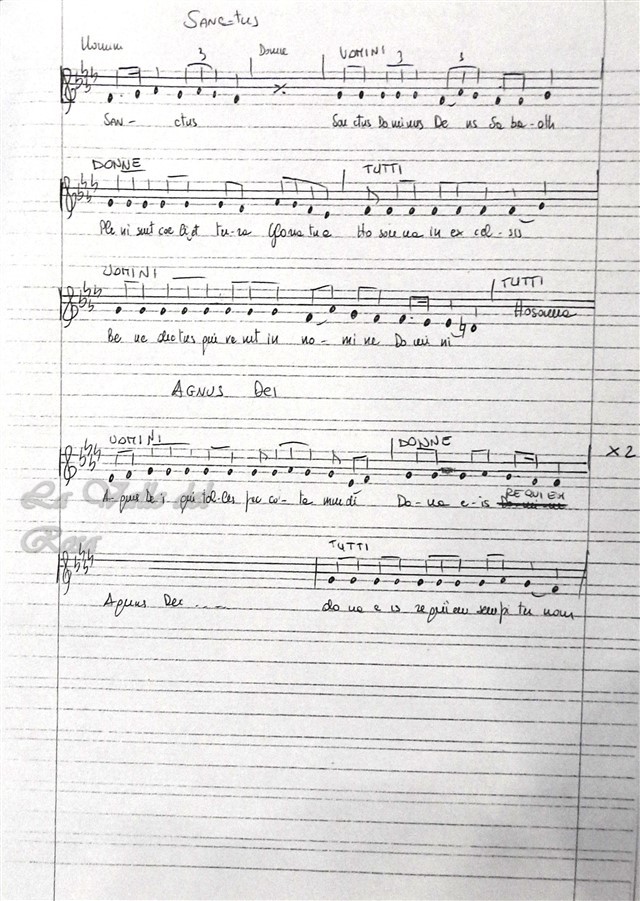 SANCTUS
Uomini 3 Donne UOMINI 3 3
SAN- ctus Sanctus Dominus De us Sa ba-oth
DONNE TUTTI
Ple ni sunt coe li et ter-ra Gloria tua Ho sanna in ex cel-sis
UOMINI TUTTI
Be ne dictus qui venit in no-mi ne Do mi ni Hosanna
AGNUS DEI
UOMINI DONNE X 2
A-gnus De i qui tol-lis pec ca-ta mundi Do-na e-is REQUIEM
La Valle del
Rasa
TUTTI
Agnus Dei ... do na e is requiem sempi ter nam